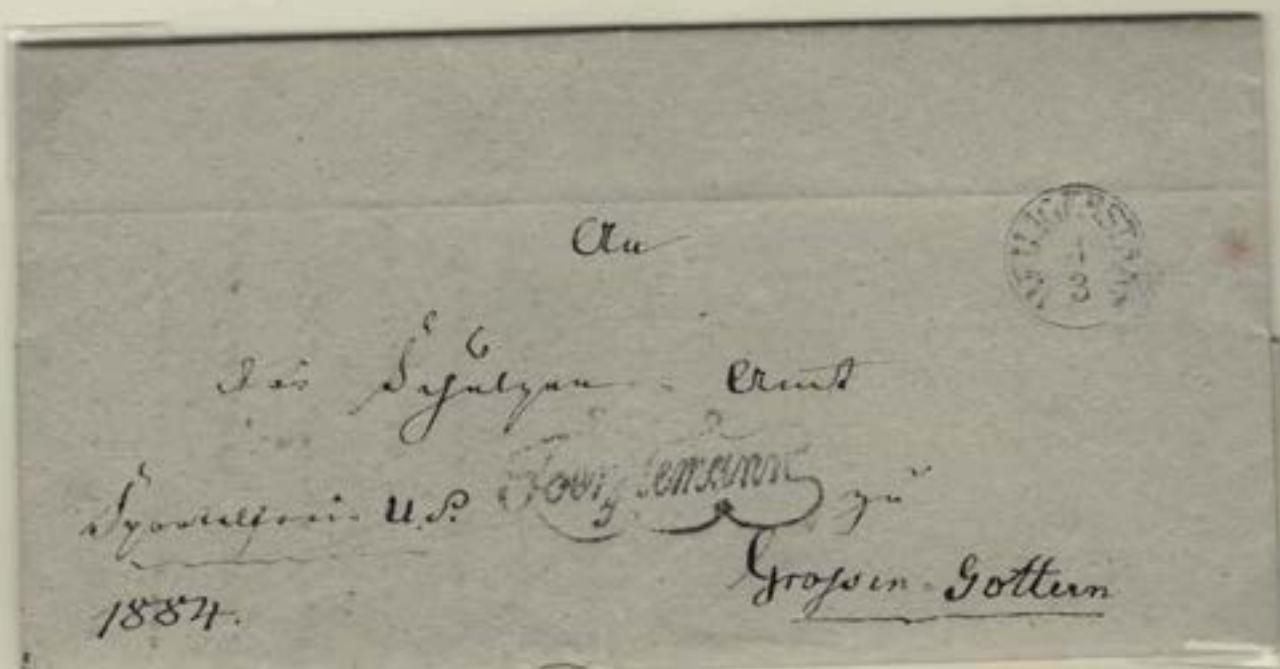 An
1
3
das Schulzen-Amt
Sportelfrei U.S. zu
Grossen-Gottern
1884.